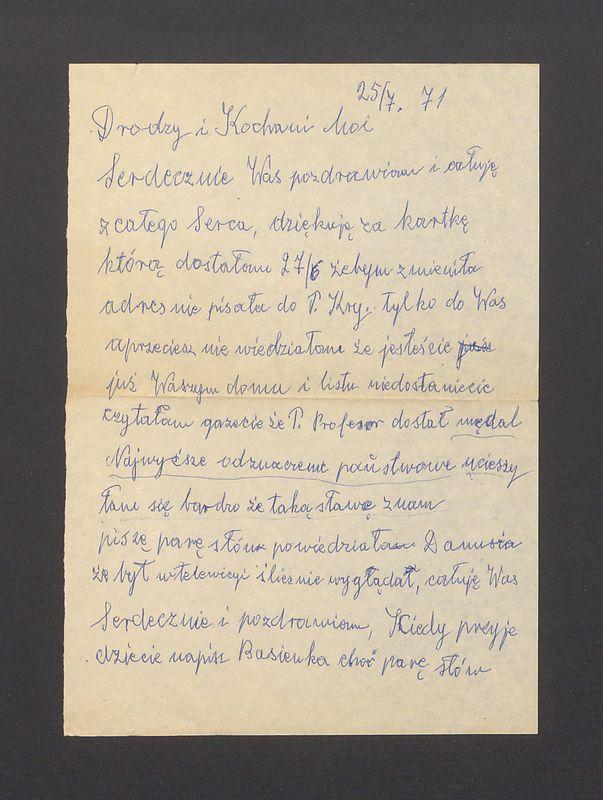 25/7. 71
Drodzy i Kochani Moi
Serdecznie Was pozdrawiam i całuję
z całego Serca, dziękuję za kartkę
którą dostałam 27/6 żebym zmieniła
adres nie pisała do P. Kry. tylko do Was
aprzeciesz nie wiedziałam że jesteście
już Waszym domu i listu niedostaniecie
czytałam gazecie że P. Profesor dostał medal
Najwyższe odznaczenie państwowe ucieszy
łam się bardzo że taką sławę znam
piszę parę słów powiedziała Danusia
że był w telewicyi ślicznie wyglądał, całuję Was
Serdecznie i pozdrawiam, Kiedy przyje
dziecie napisz Basieńka choć parę słów